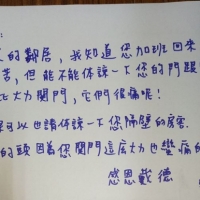 :
的鄰居，我知道您加班回來
苦，但能不能体諒一下您的門跟
大力関門，它們很痛呢！
可以也請体諒一下您隔壁的房客
的頭因為您関門這庅大力也蠻痛的
感恩戴德